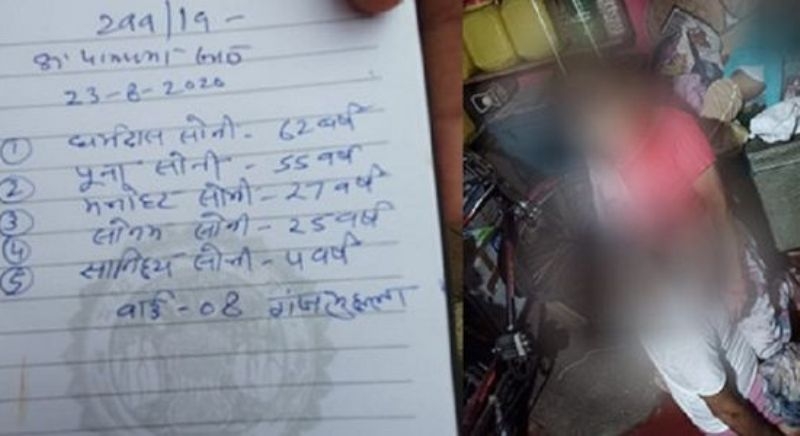 299/19 -
23-8-2020
① धर्मदास सोनी - 62 वर्ष
② पूना सोनी - 55 वर्ष
③ मनोहर सोनी - 27 वर्ष
④ सोनम सोनी - 25 वर्ष
⑤ सानिध्य सोनी - 4 वर्ष
वार्ड - 08